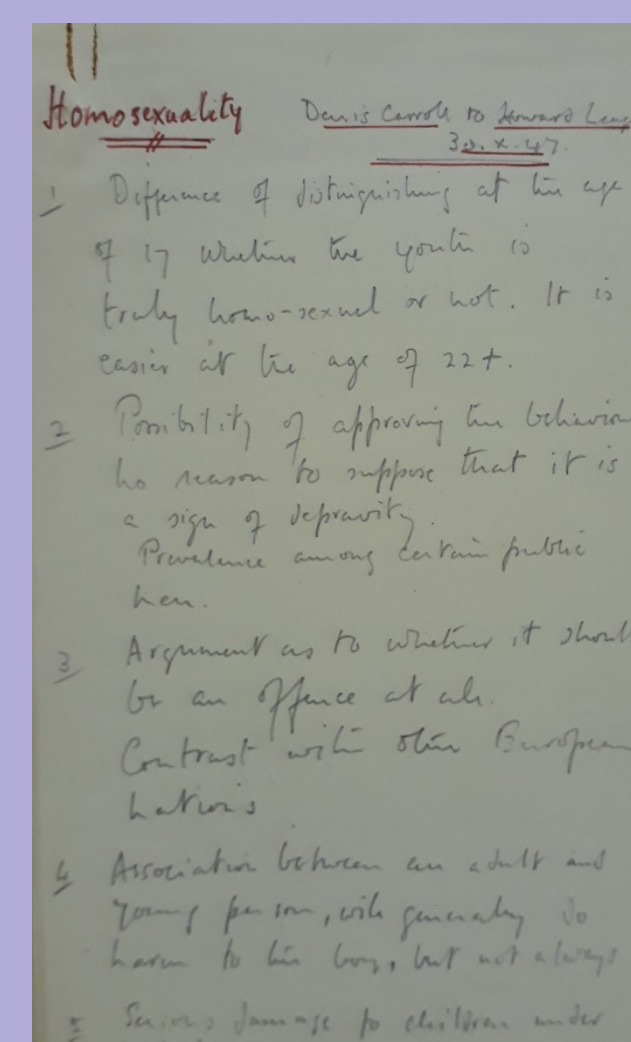 Homosexuality Denis Carroll to Howard
30.x.47.
1 Difference of distinguishing at the age
of 17 whether the youth is
truly homo-sexual or not. It is
easier at the age of 22+.
2 Possibility of approving the behaviour
no reason to suppose that it is
a sign of depravity.
Prevalence among certain public
men.
3 Argument as to whether it shoul
be an offence at all.
Contrast with other European
nations
4 Association between an adult and
young person, will generally do
harm to the boy, but not always
5 Serious damage to children under